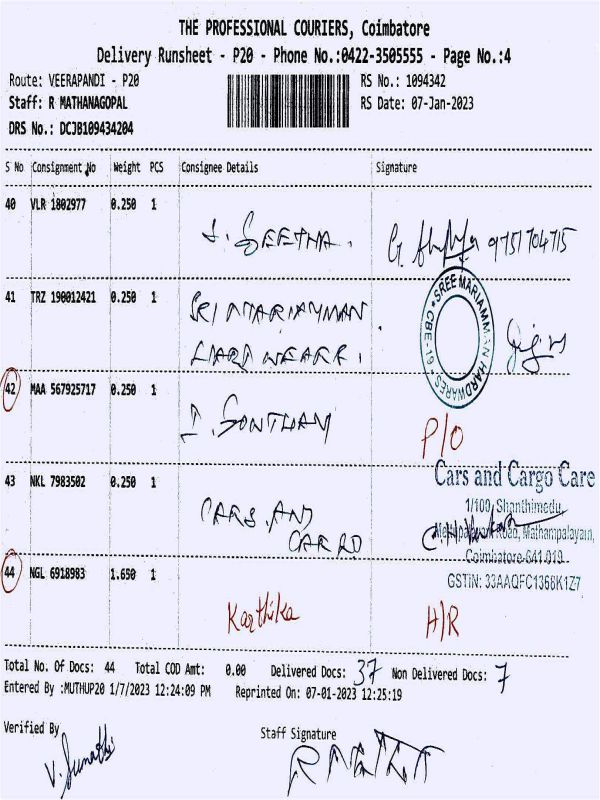 THE PROFESSIONAL COURIERS, Coimbatore
Delivery Runsheet - P20 - Phone No.:0422-3505555 - Page No.:4
Route: VEERAPANDI - P20 RS No.: 1094342
Staff: R MATHANAGOPAL RS Date: 07-Jan-2023
DRS No.: DCJB109434204
S No Consignment No Weight PCS Consignee Details Signature
40 VLR 1802977 0.250 1
J. SEETHA. G. 9751704715
41 TRZ 190012421 0.250 1
SRI MARIAMMAN
HARDWEARE.
SREE MARIAMMAN HARDWARES * CBE-19 *
42 MAA 567925717 0.250 1
I. SONTHAM P/O
43 NKL 7983502 0.250 1
CARS AND
CARGO
Cars and Cargo Care
1/100, Shanthimedu,
Road, Mathampalayam,
Coimbatore-641 019
GSTIN: 33AAQFC1368K1Z7
44 NGL 6918983 1.650 1
Karthika H/R
Total No. Of Docs: 44 Total COD Amt: 0.00 Delivered Docs: 37 Non Delivered Docs: 7
Entered By :MUTHUP20 1/7/2023 12:24:09 PM Reprinted On: 07-01-2023 12:25:19
Verified By Staff Signature
V. Sumathi